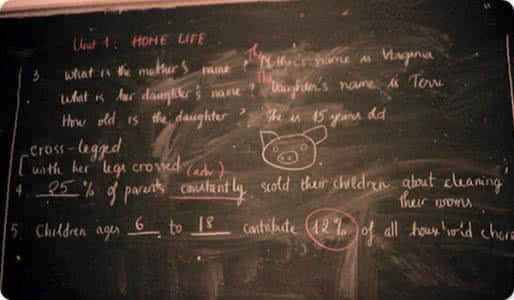 Unit 1: HOME LIFE
3. What is the mother's name? The Mother's name is Virginia
What is her daughter's name? The Daughter's name is
How old is the daughter? She is 15 years old
cross-legged
with her legs crossed (adv)
4. 25 % of parents constantly scold their children about cleaning
their rooms
5. Children ages 6 to 18 contribute 12% of all household chores